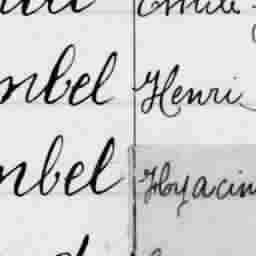 Emile
mbel Henri
mbel Hyacin